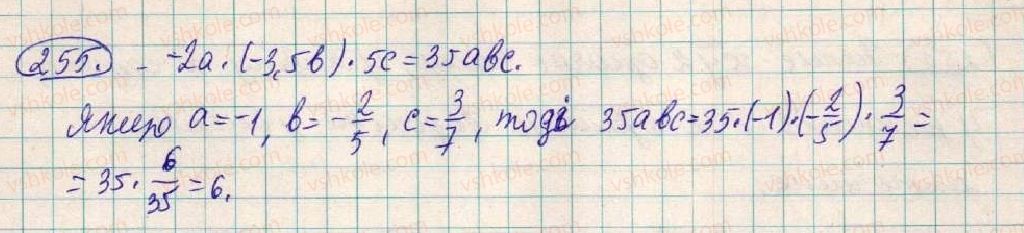 255. - -2a · (-3,5b) · 5c = 35abc.
Якщо a = -1, b = -2/5, c = 3/7, тоді 35abc = 35 · (-1) · (-2/5) · 3/7 =
= 35 · 6/35 = 6.